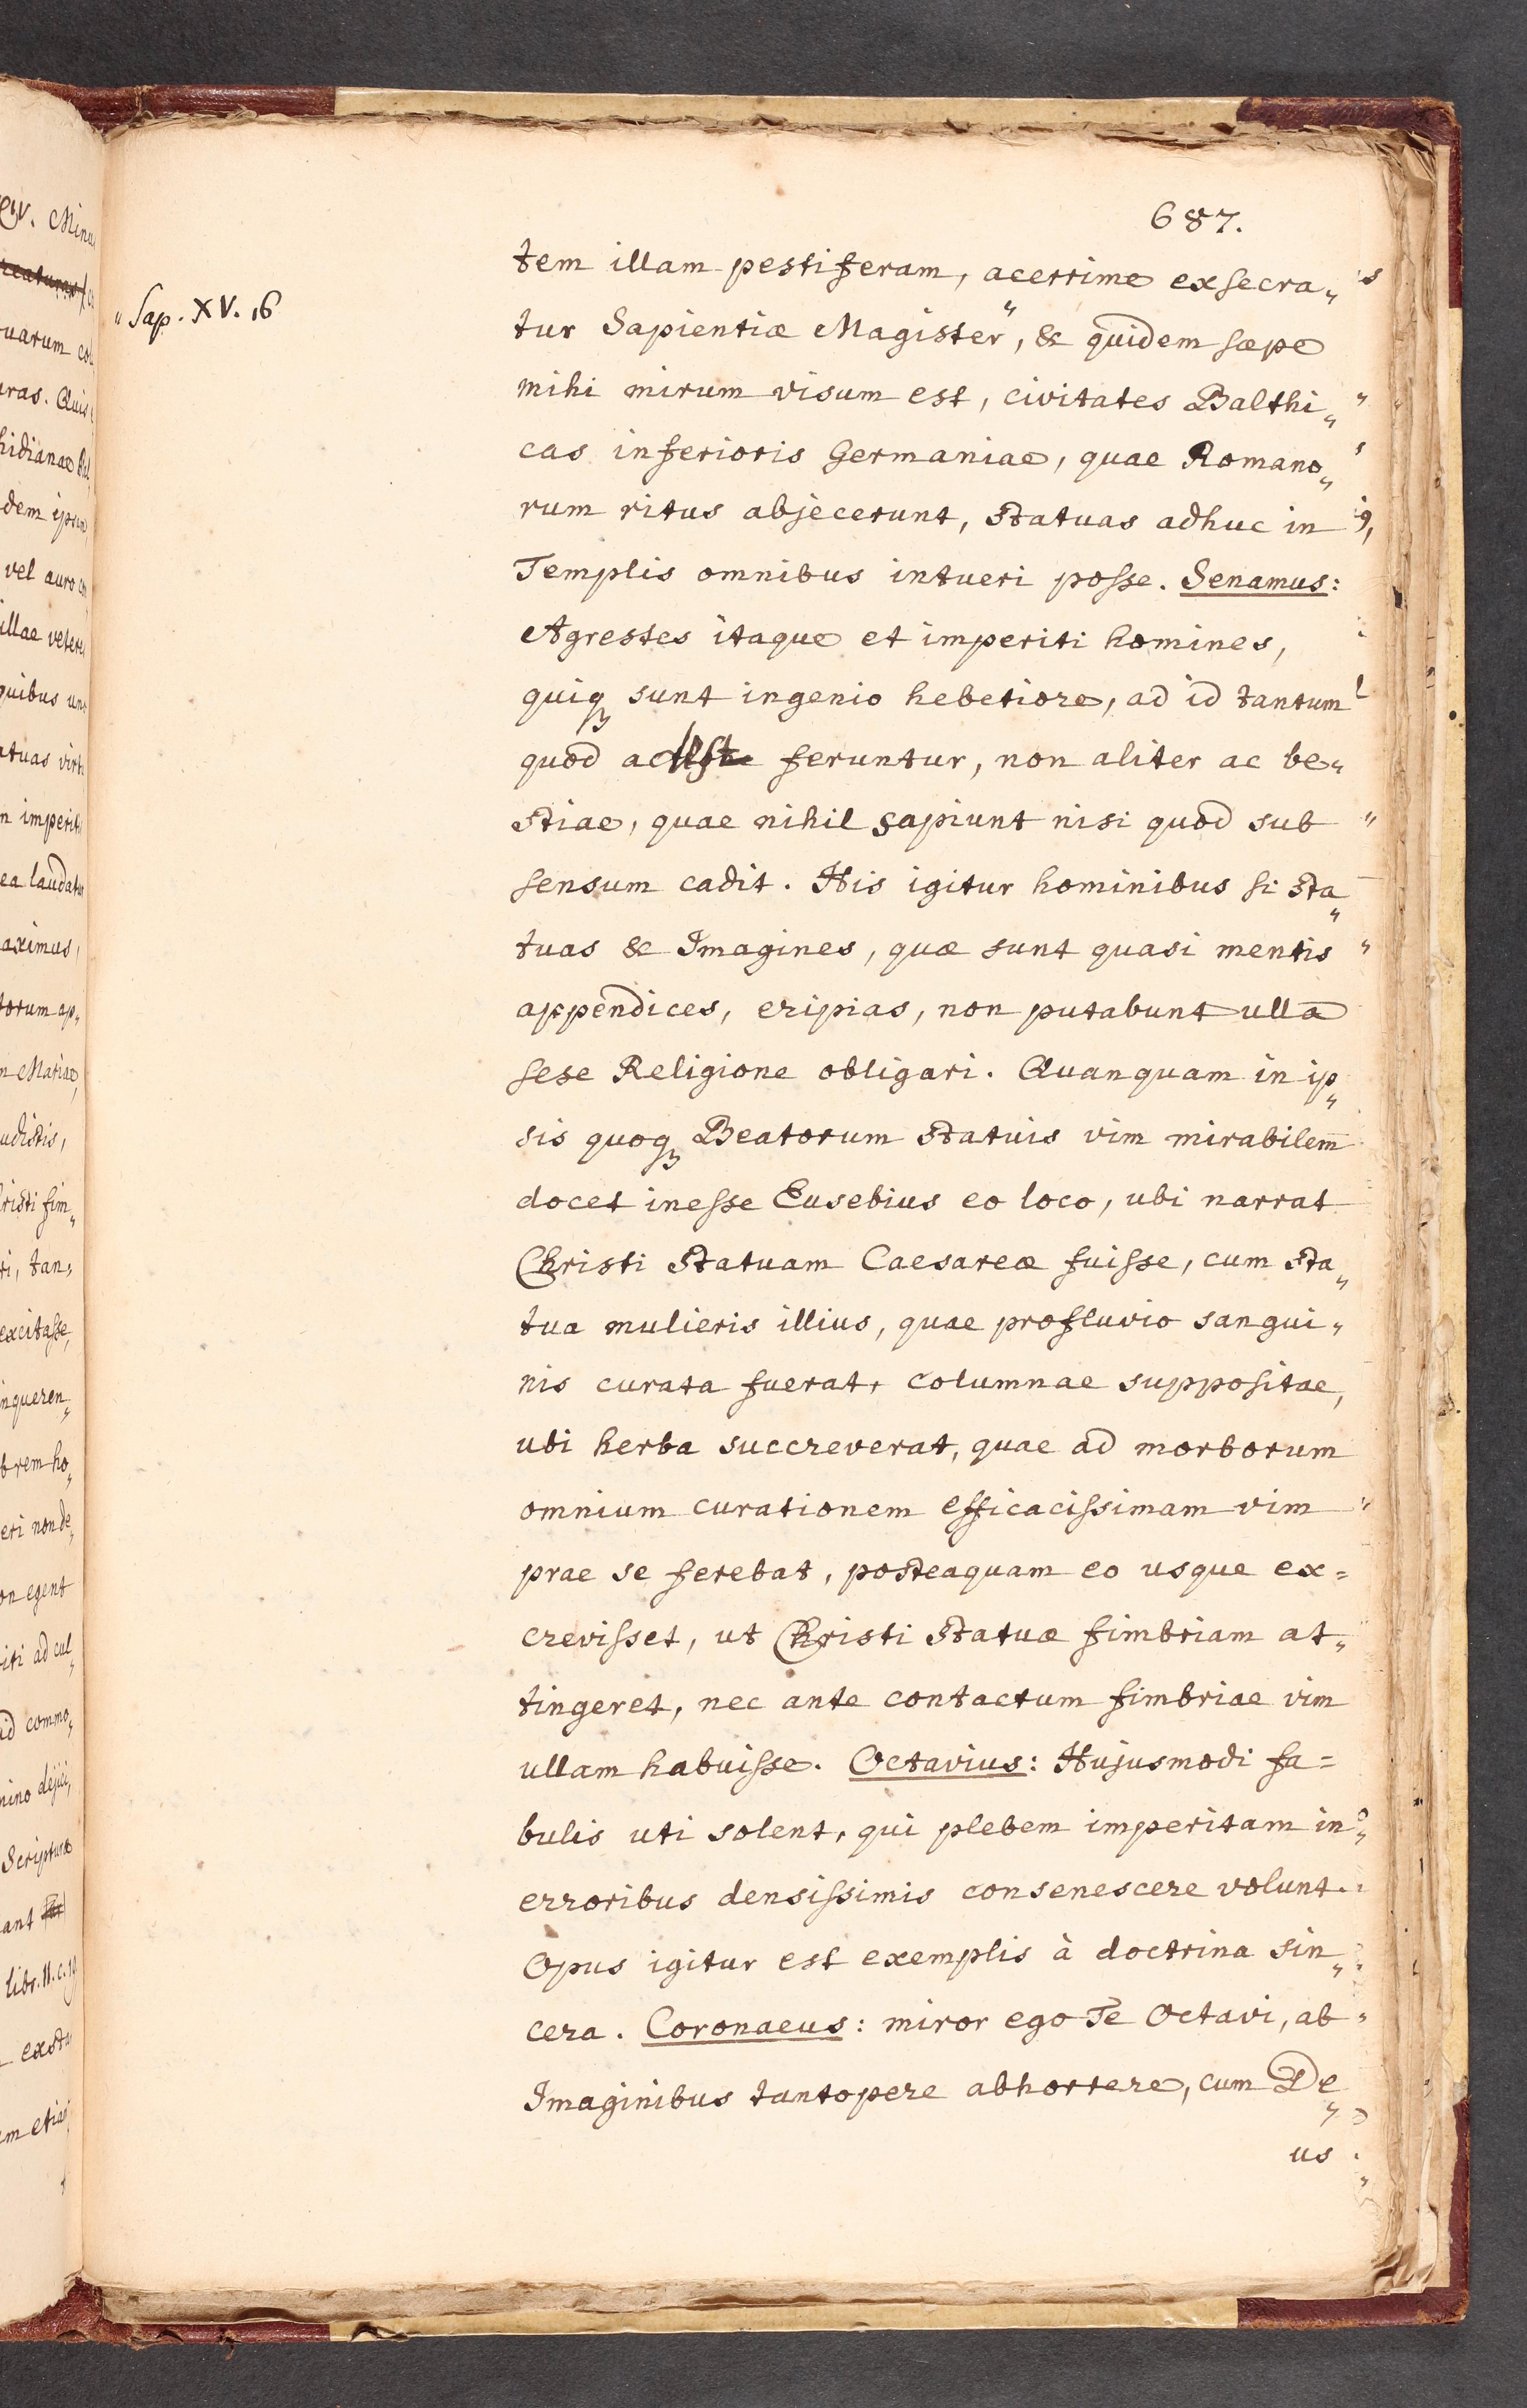 687.
„ Sap. XV. 16
tem illam pestiferam, acerrime exsecra„
tur Sapientiæ Magister“, & quidem sæpe
mihi mirum visum est, civitates Balthi„
cas inferioris Germaniae, quae Romano„
rum ritus abjecerunt, statuas adhuc in
Templis omnibus intueri posse. Senamus:
Agrestes itaque et imperiti homines,
quiqꝫ sunt ingenio hebetiore, ad id tantum
quod feruntur, non aliter ac be„
stiae, quae nihil sapiunt nisi quod sub
sensum cadit. His igitur hominibus si sta„
tuas & Imagines, quæ sunt quasi mentis
appendices, eripias, non putabunt ullā
sese Religione obligari. Quanquam in ip„
sis quoqꝫ Beatorum statuis vim mirabilem
docet inesse Eusebius eo loco, ubi narrat
Christi Statuam Caesareæ fuisse, cum sta„
tua mulieris illius, quae profluvio sangui„
nis curata fuerat, columnae suppositae,
ubi herba succreverat, quae ad morborum
omnium curationem efficacissimam vim
prae se ferebat, posteaquam eo usque ex=
crevisset, ut Christi statuæ fimbriam at„
tingeret, nec ante contactum fimbriae vim
ullam habuisse. Octavius: Hujusmodi fa=
bulis uti solent, qui plebem imperitam in
erroribus densissimis consenescere volunt.
Opus igitur est exemplis à doctrina sin„
cera. Coronaeus: miror ego Te Octavi, ab
Imaginibus tantopere abhorrere, cum De„
us